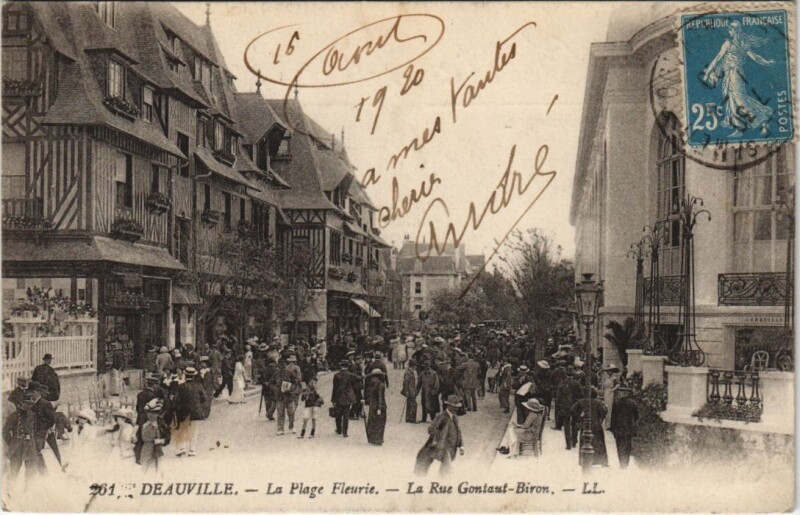 RÉPUBLIQUE FRANÇAISE
25c
POSTES
16 Août
1920
à mes tantes
chérie
André
261 DEAUVILLE. - La Plage Fleurie. - La Rue Gontaut-Biron. - LL.